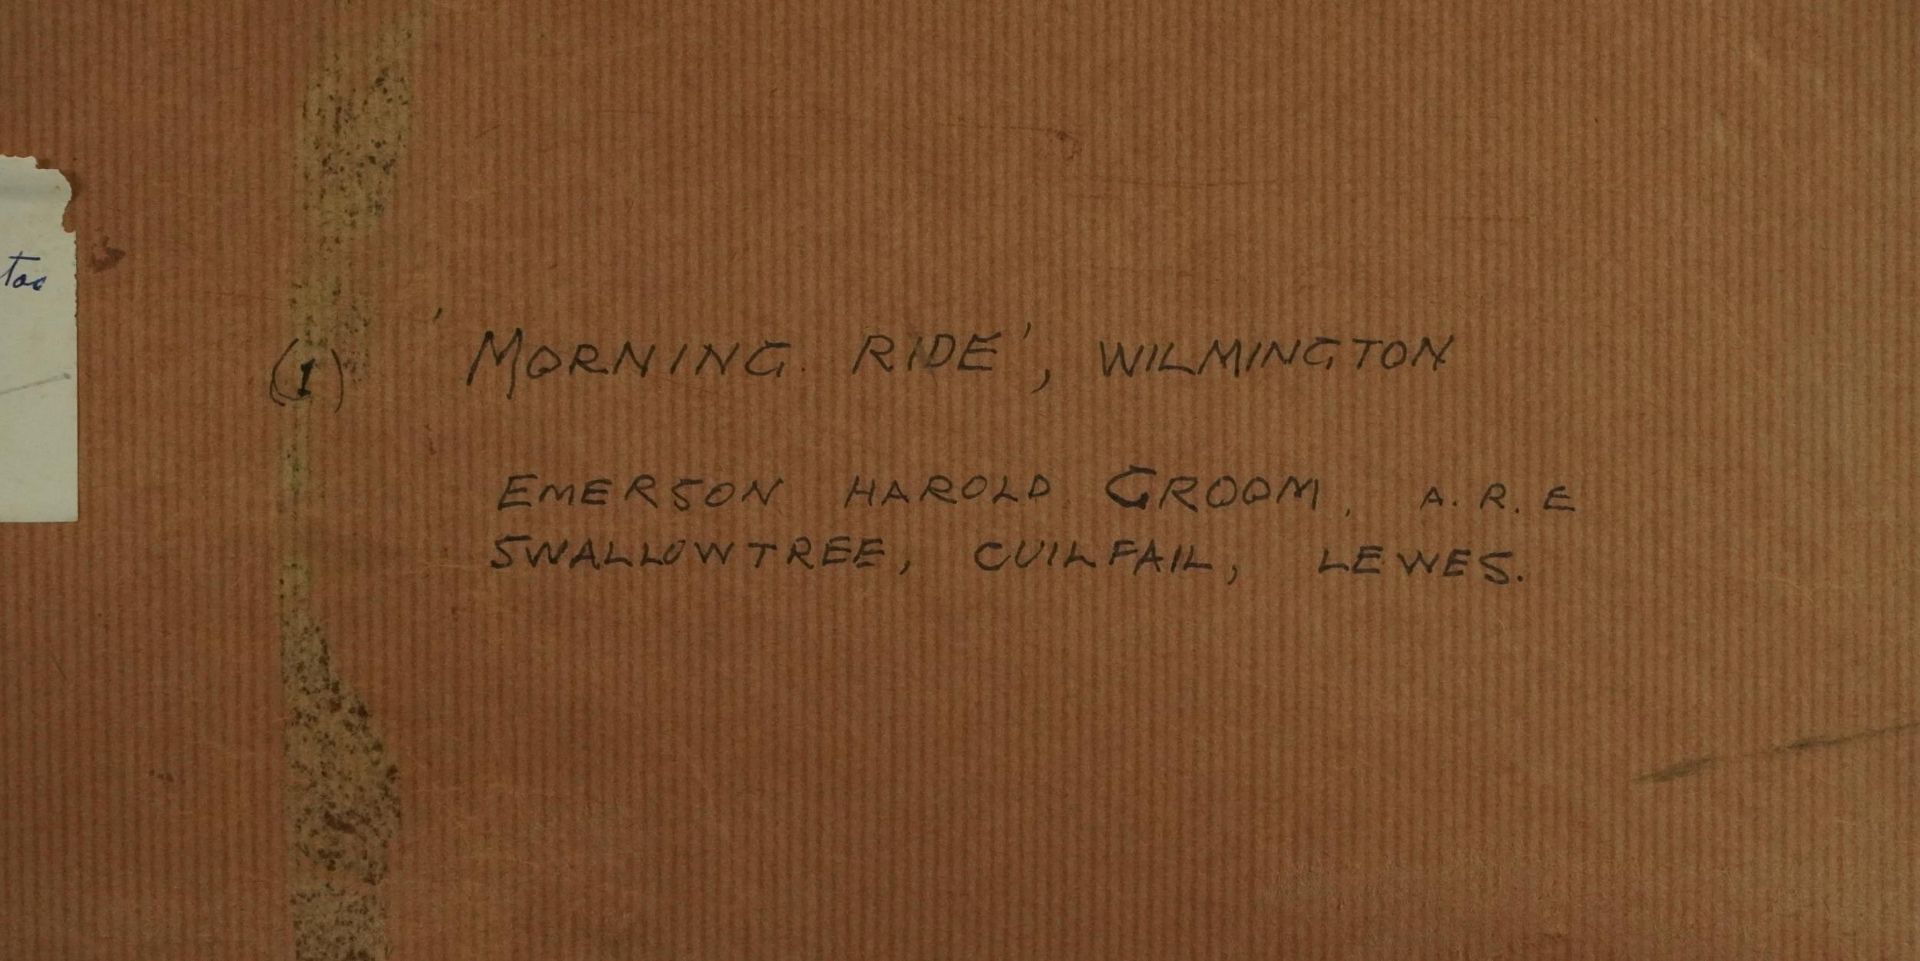 (1) 'MORNING RIDE', WILMINGTON
EMERSON HAROLD GROOM, A.R.E
SWALLOWTREE, CUILFAIL, LEWES.